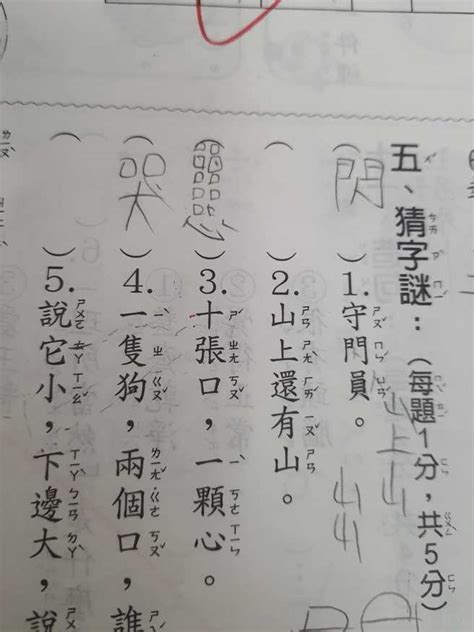 五、猜字謎：（每題1分，共5分）
山上山
（閃）1.守門員。
山山
（ ）2.山上還有山。
（ ）3.十張口，一顆心。
（哭）4.一隻狗，兩個口，誰
（ ）5.說它小，下邊大，說